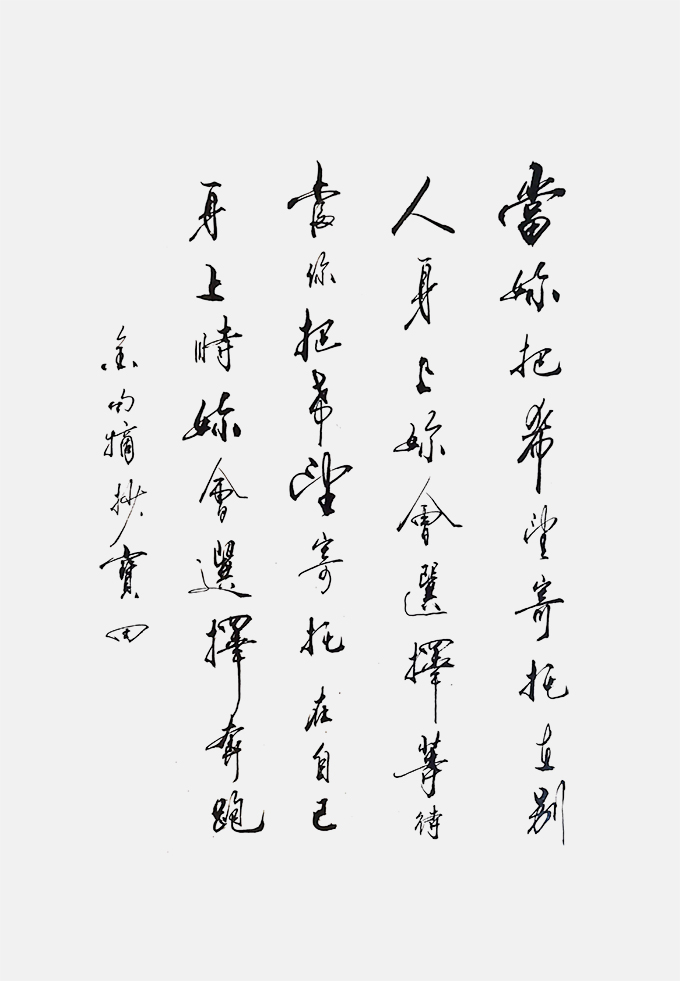 當妳把希望寄托在别
人身上妳會選擇等待
當你把希望寄托在自己
身上時妳會選擇奔跑
金句摘抄寶田